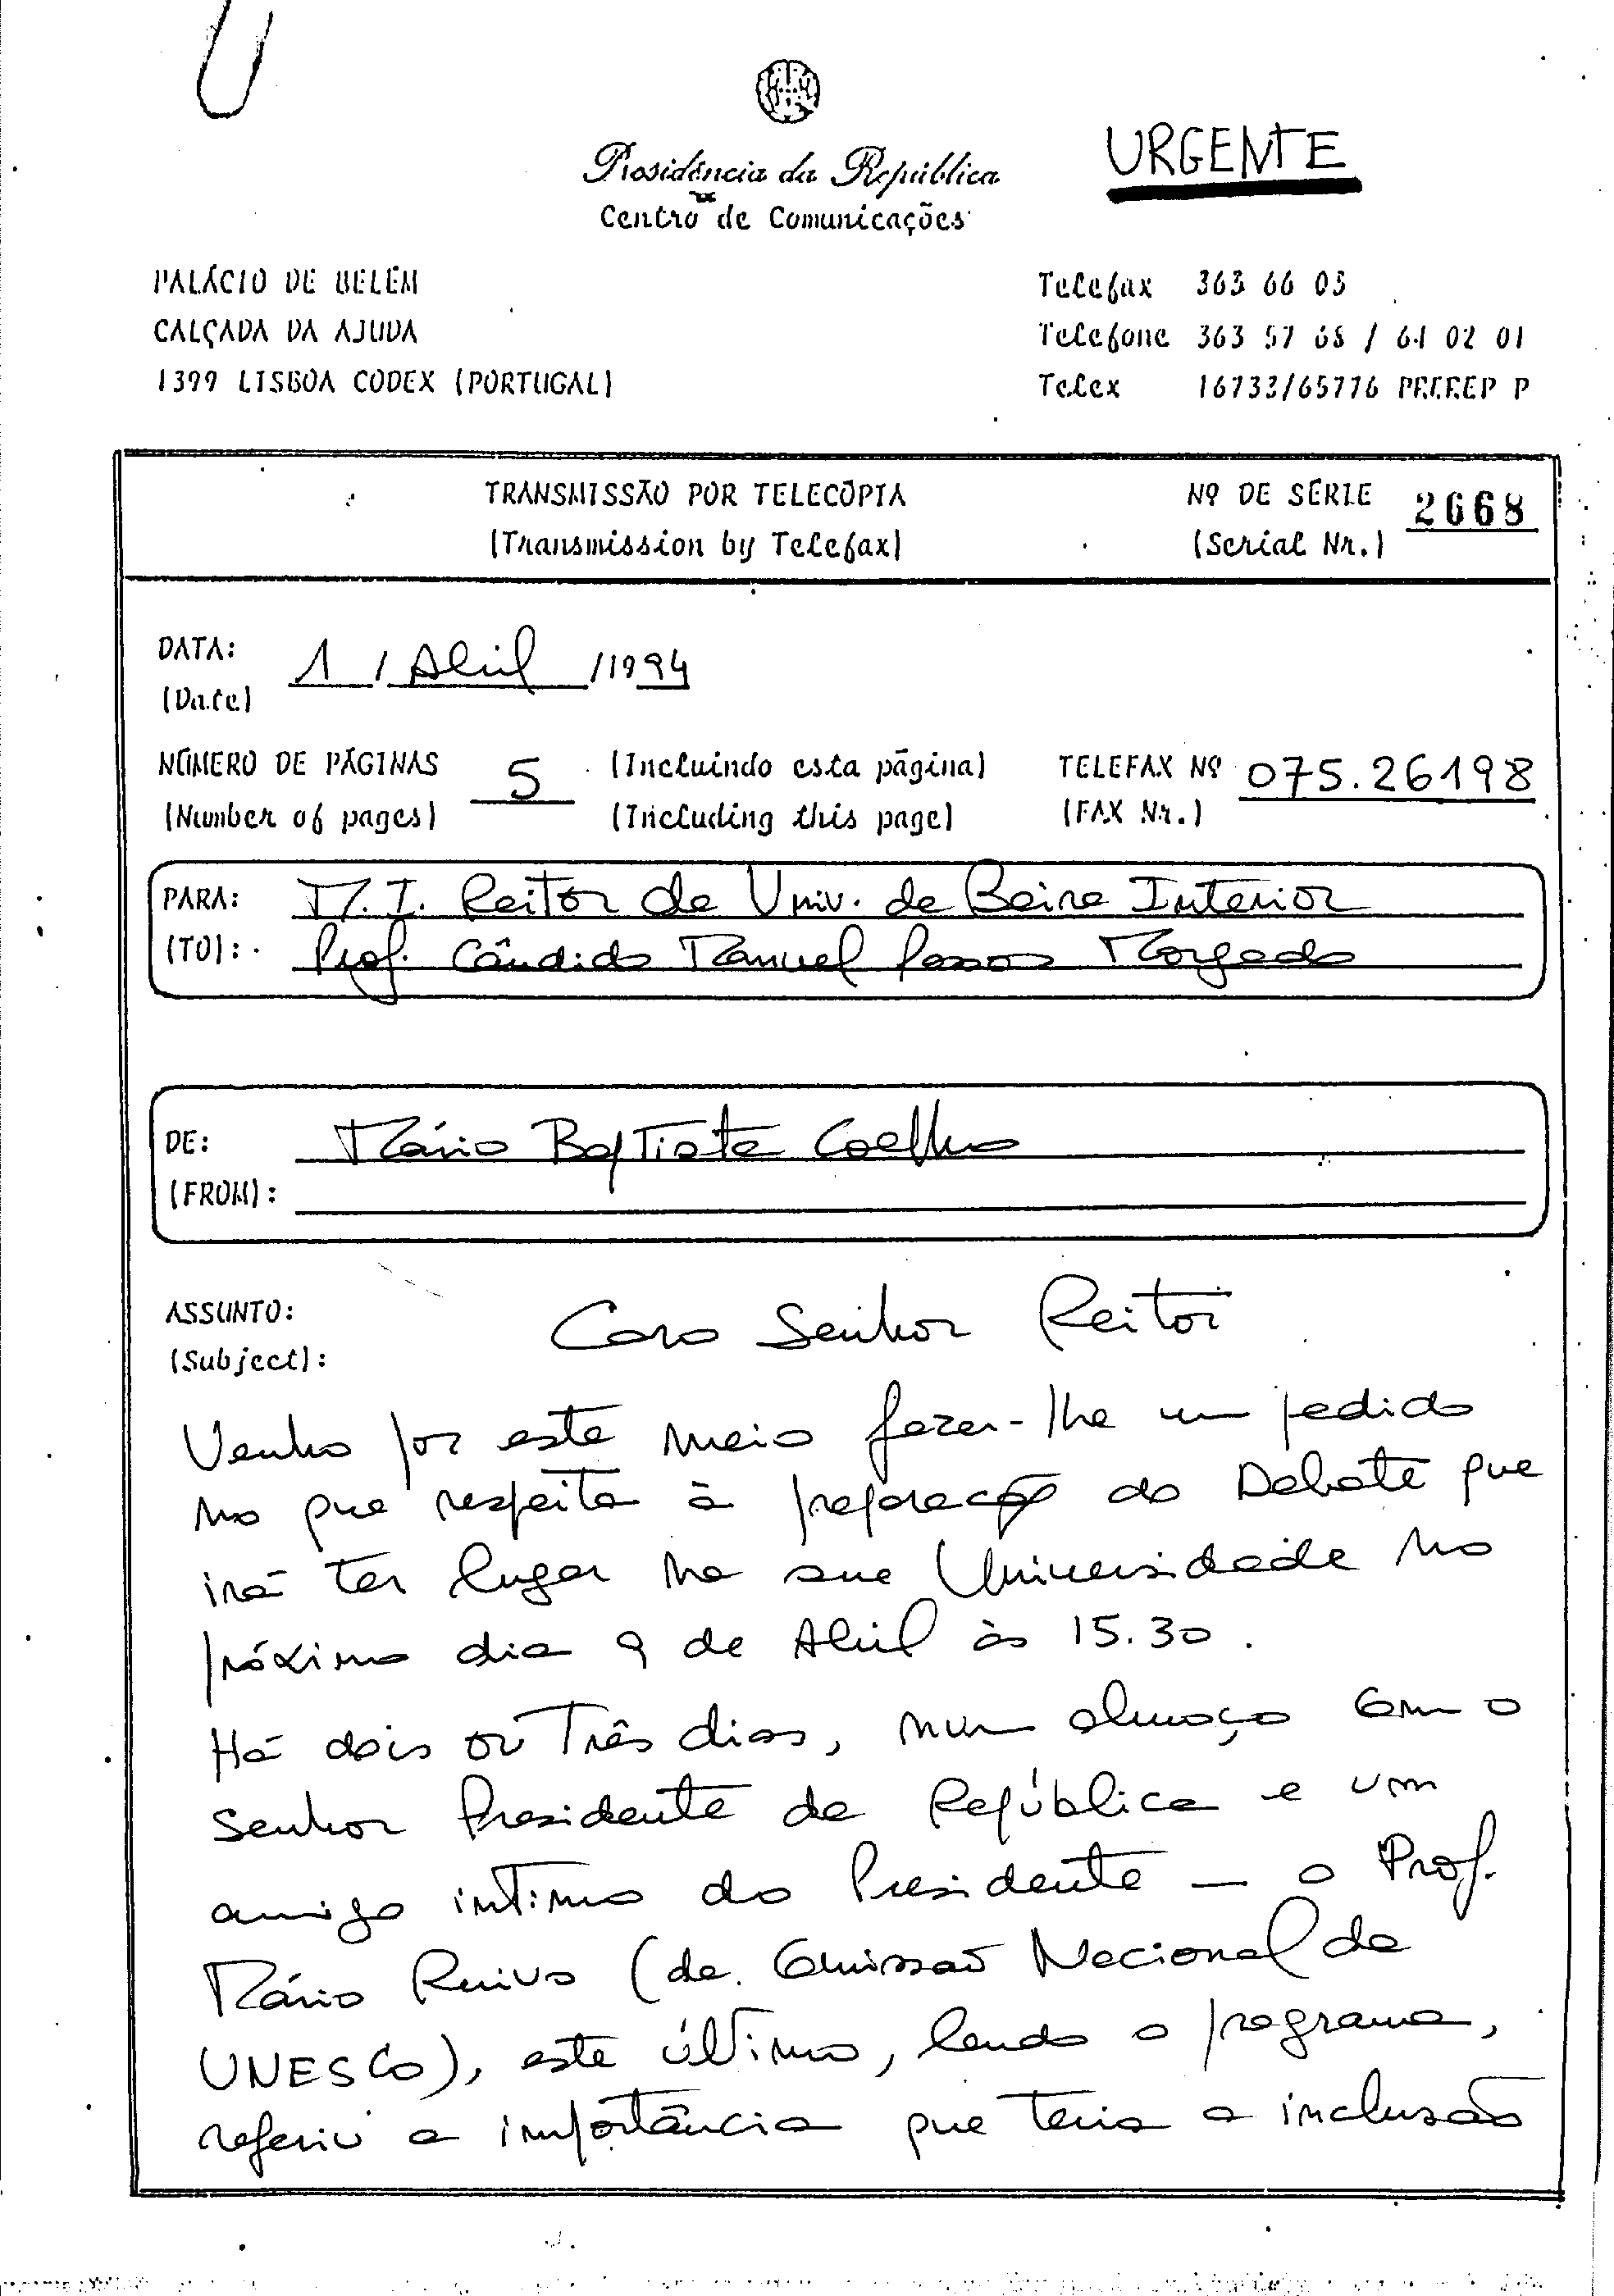 Presidência da República
URGENTE
Centro de Comunicações
PALÁCIO DE BELÉM
CALÇADA DA AJUDA
1399 LISBOA CODEX (PORTUGAL)
Telefax 363 66 03
Telefone 363 57 68 / 64 02 01
Telex 16733/65776 P P
TRANSMISSÃO POR TELECÓPIA
(Transmission by Telefax)
Nº DE SÉRIE 2668
(Serial Nr.)
DATA: 1 / Abril / 1994
(Date)
NÚMERO DE PÁGINAS 5 (Incluindo esta página) TELEFAX Nº 075.26198
(Number of pages) (Including this page) (FAX Nr.)
PARA: M.I. Reitor da Univ. da Beira Interior
(TO): Prof. Cândido Manuel Passos Morgado
DE: Mário Baptista Coelho
(FROM):
ASSUNTO: Caro Senhor Reitor
(Subject):
Venho por este meio fazer-lhe um pedido
no que respeita à preparação do Debate que
irá ter lugar na sua Universidade no
próximo dia 9 de Abril às 15.30.
Há dois ou três dias, num almoço com o
Senhor Presidente da República e um
amigo íntimo do Presidente – o Prof.
Mário Ruivo (da Comissão Nacional da
UNESCO), este último, lendo o programa,
referiu a importância que teria a inclusão